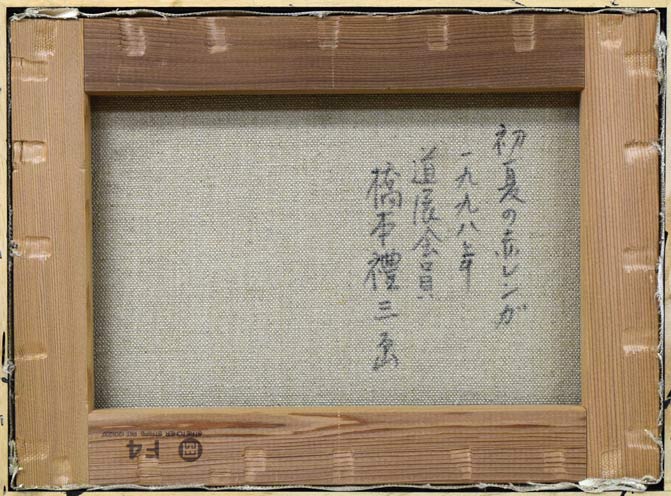 初夏の赤レンガ
一九九八年
道展会員
橋本禮三画
F4